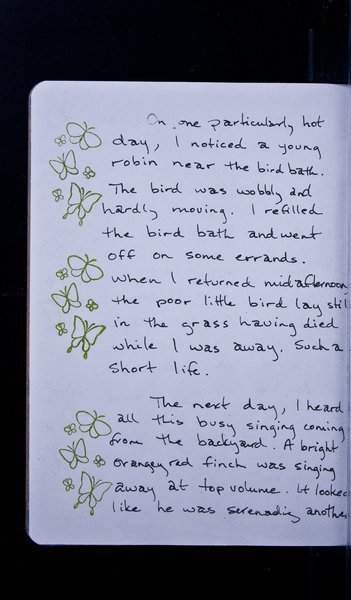 On one particularly hot
day, I noticed a young
robin near the bird bath.
The bird was wobbly and
hardly moving. I refilled
the bird bath and went
off on some errands.
When I returned midafternoon
the poor little bird lay stil
in the grass having died
while I was away. Such a
short life.
The next day, I heard
all this busy singing coming
from the backyard. A bright
orangey red finch was singing
away at top volume. It looked
like he was serenadig another